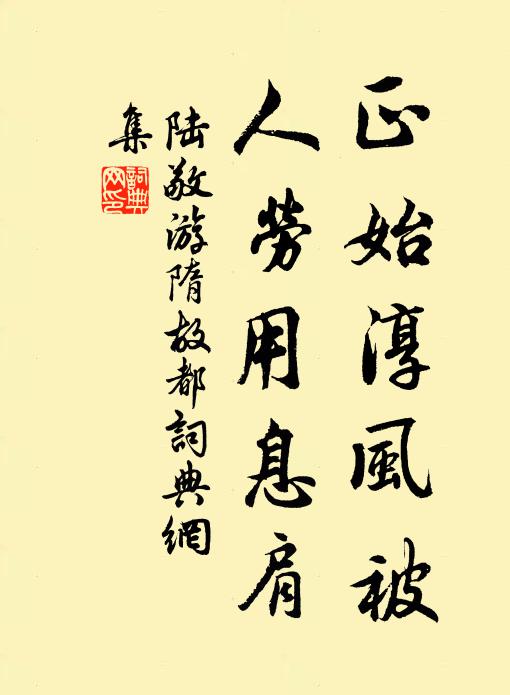 正始淳風被
人勞用息肩
陸敬游隋故都詞典網
集
詞典網印